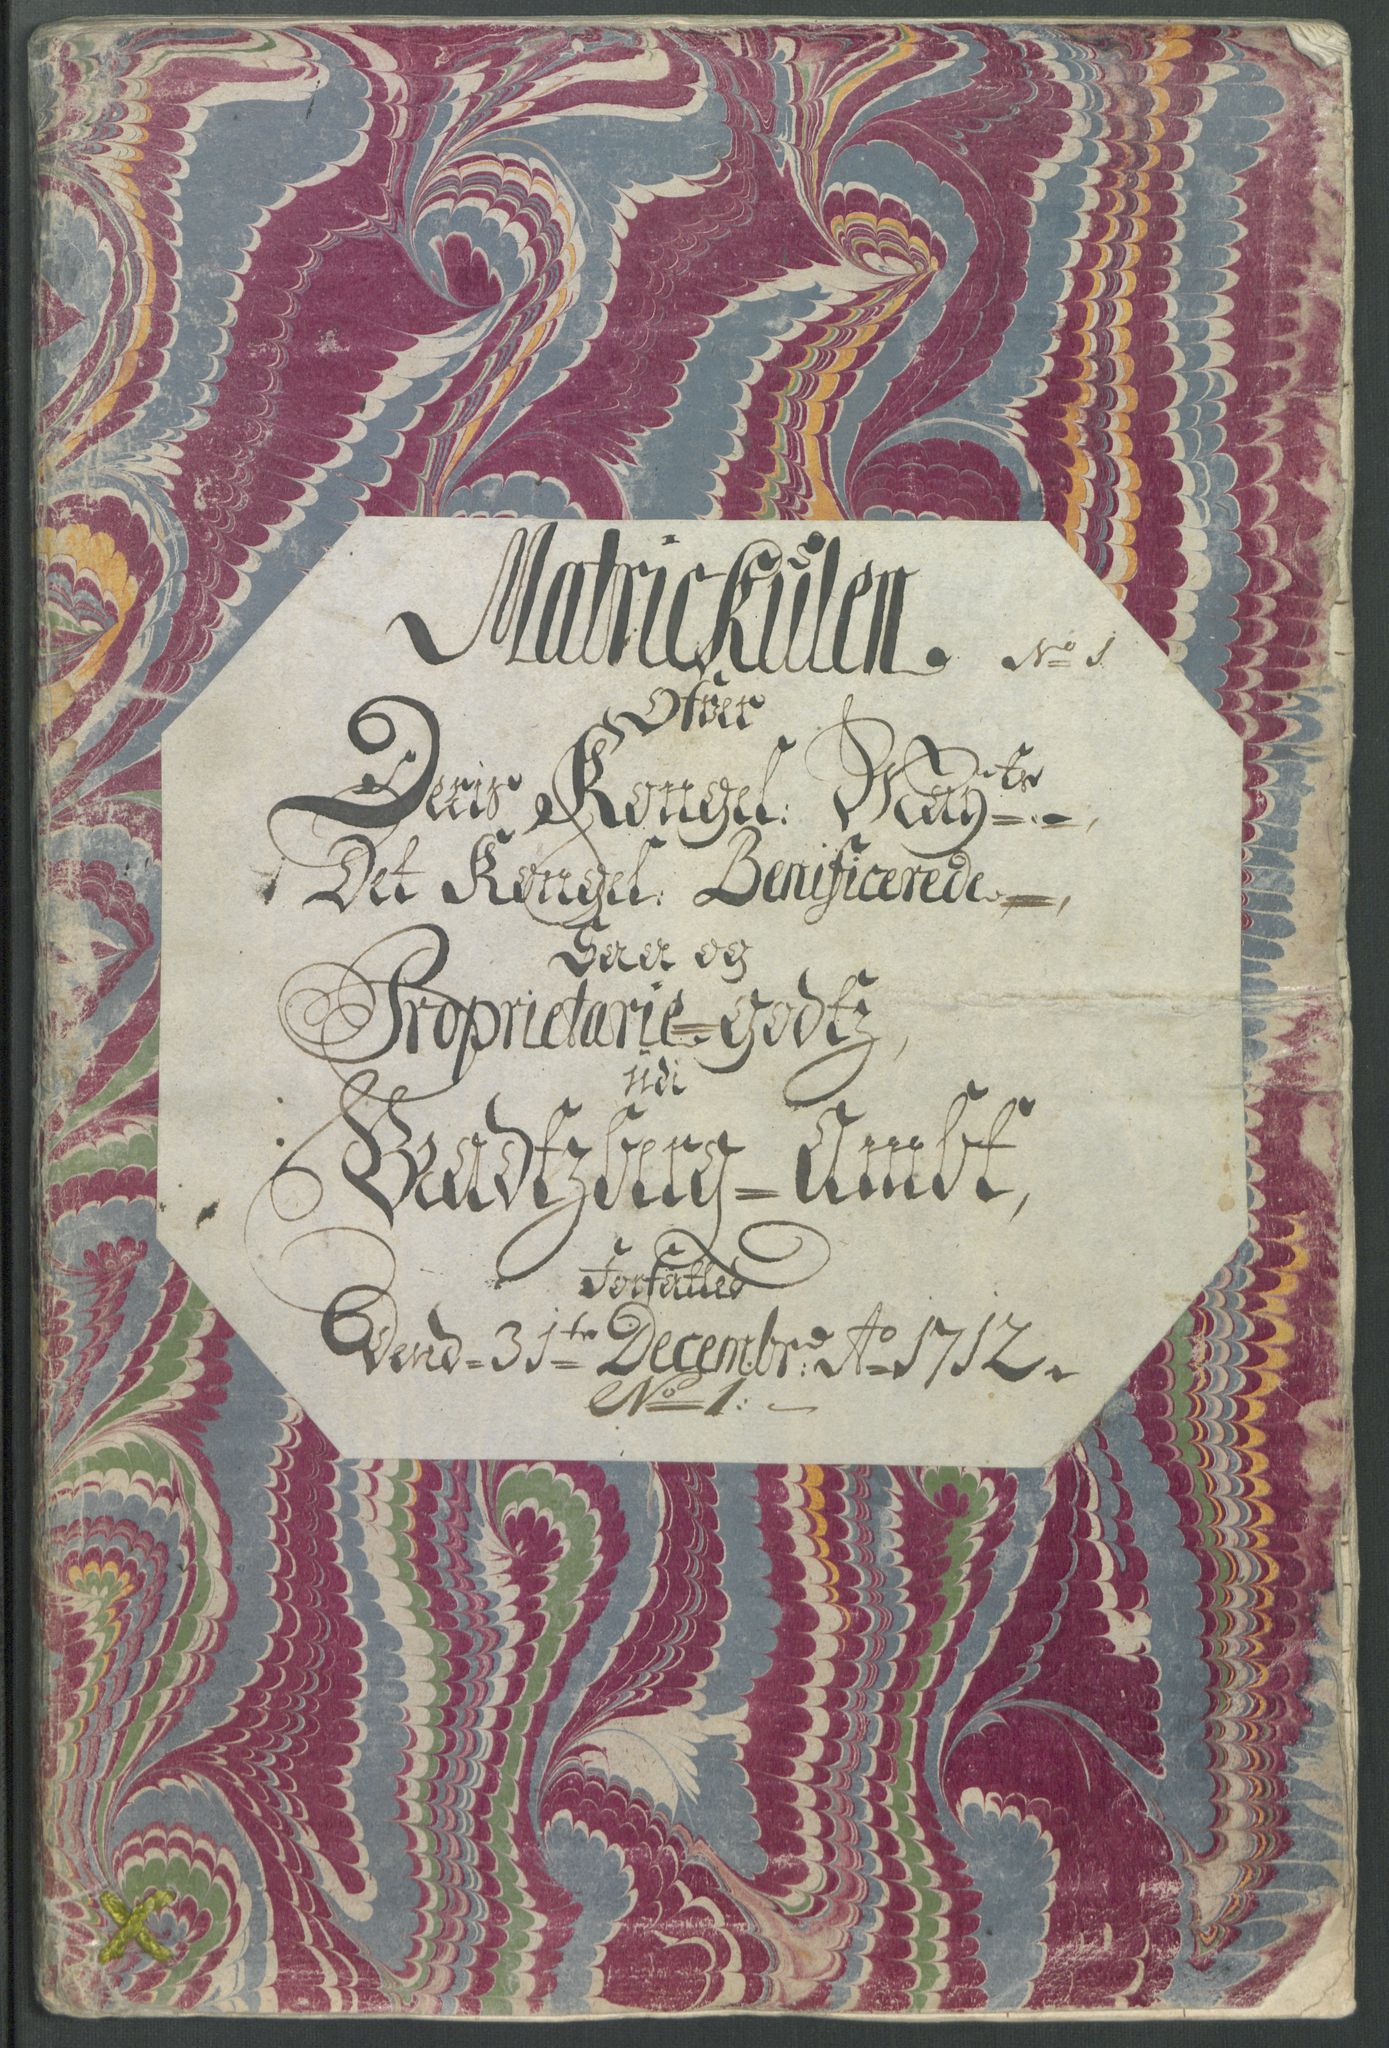 Matrickulen.
No 1.
Ofver
Deris Kongel: May:ts
Det Kongel: Benificerede,
Saa og
Proprietarie-godtz,
udi
Baadtzberg-Ambt,
Forfatted
Dend 31te Decembr: Ao 1712.
No 1: